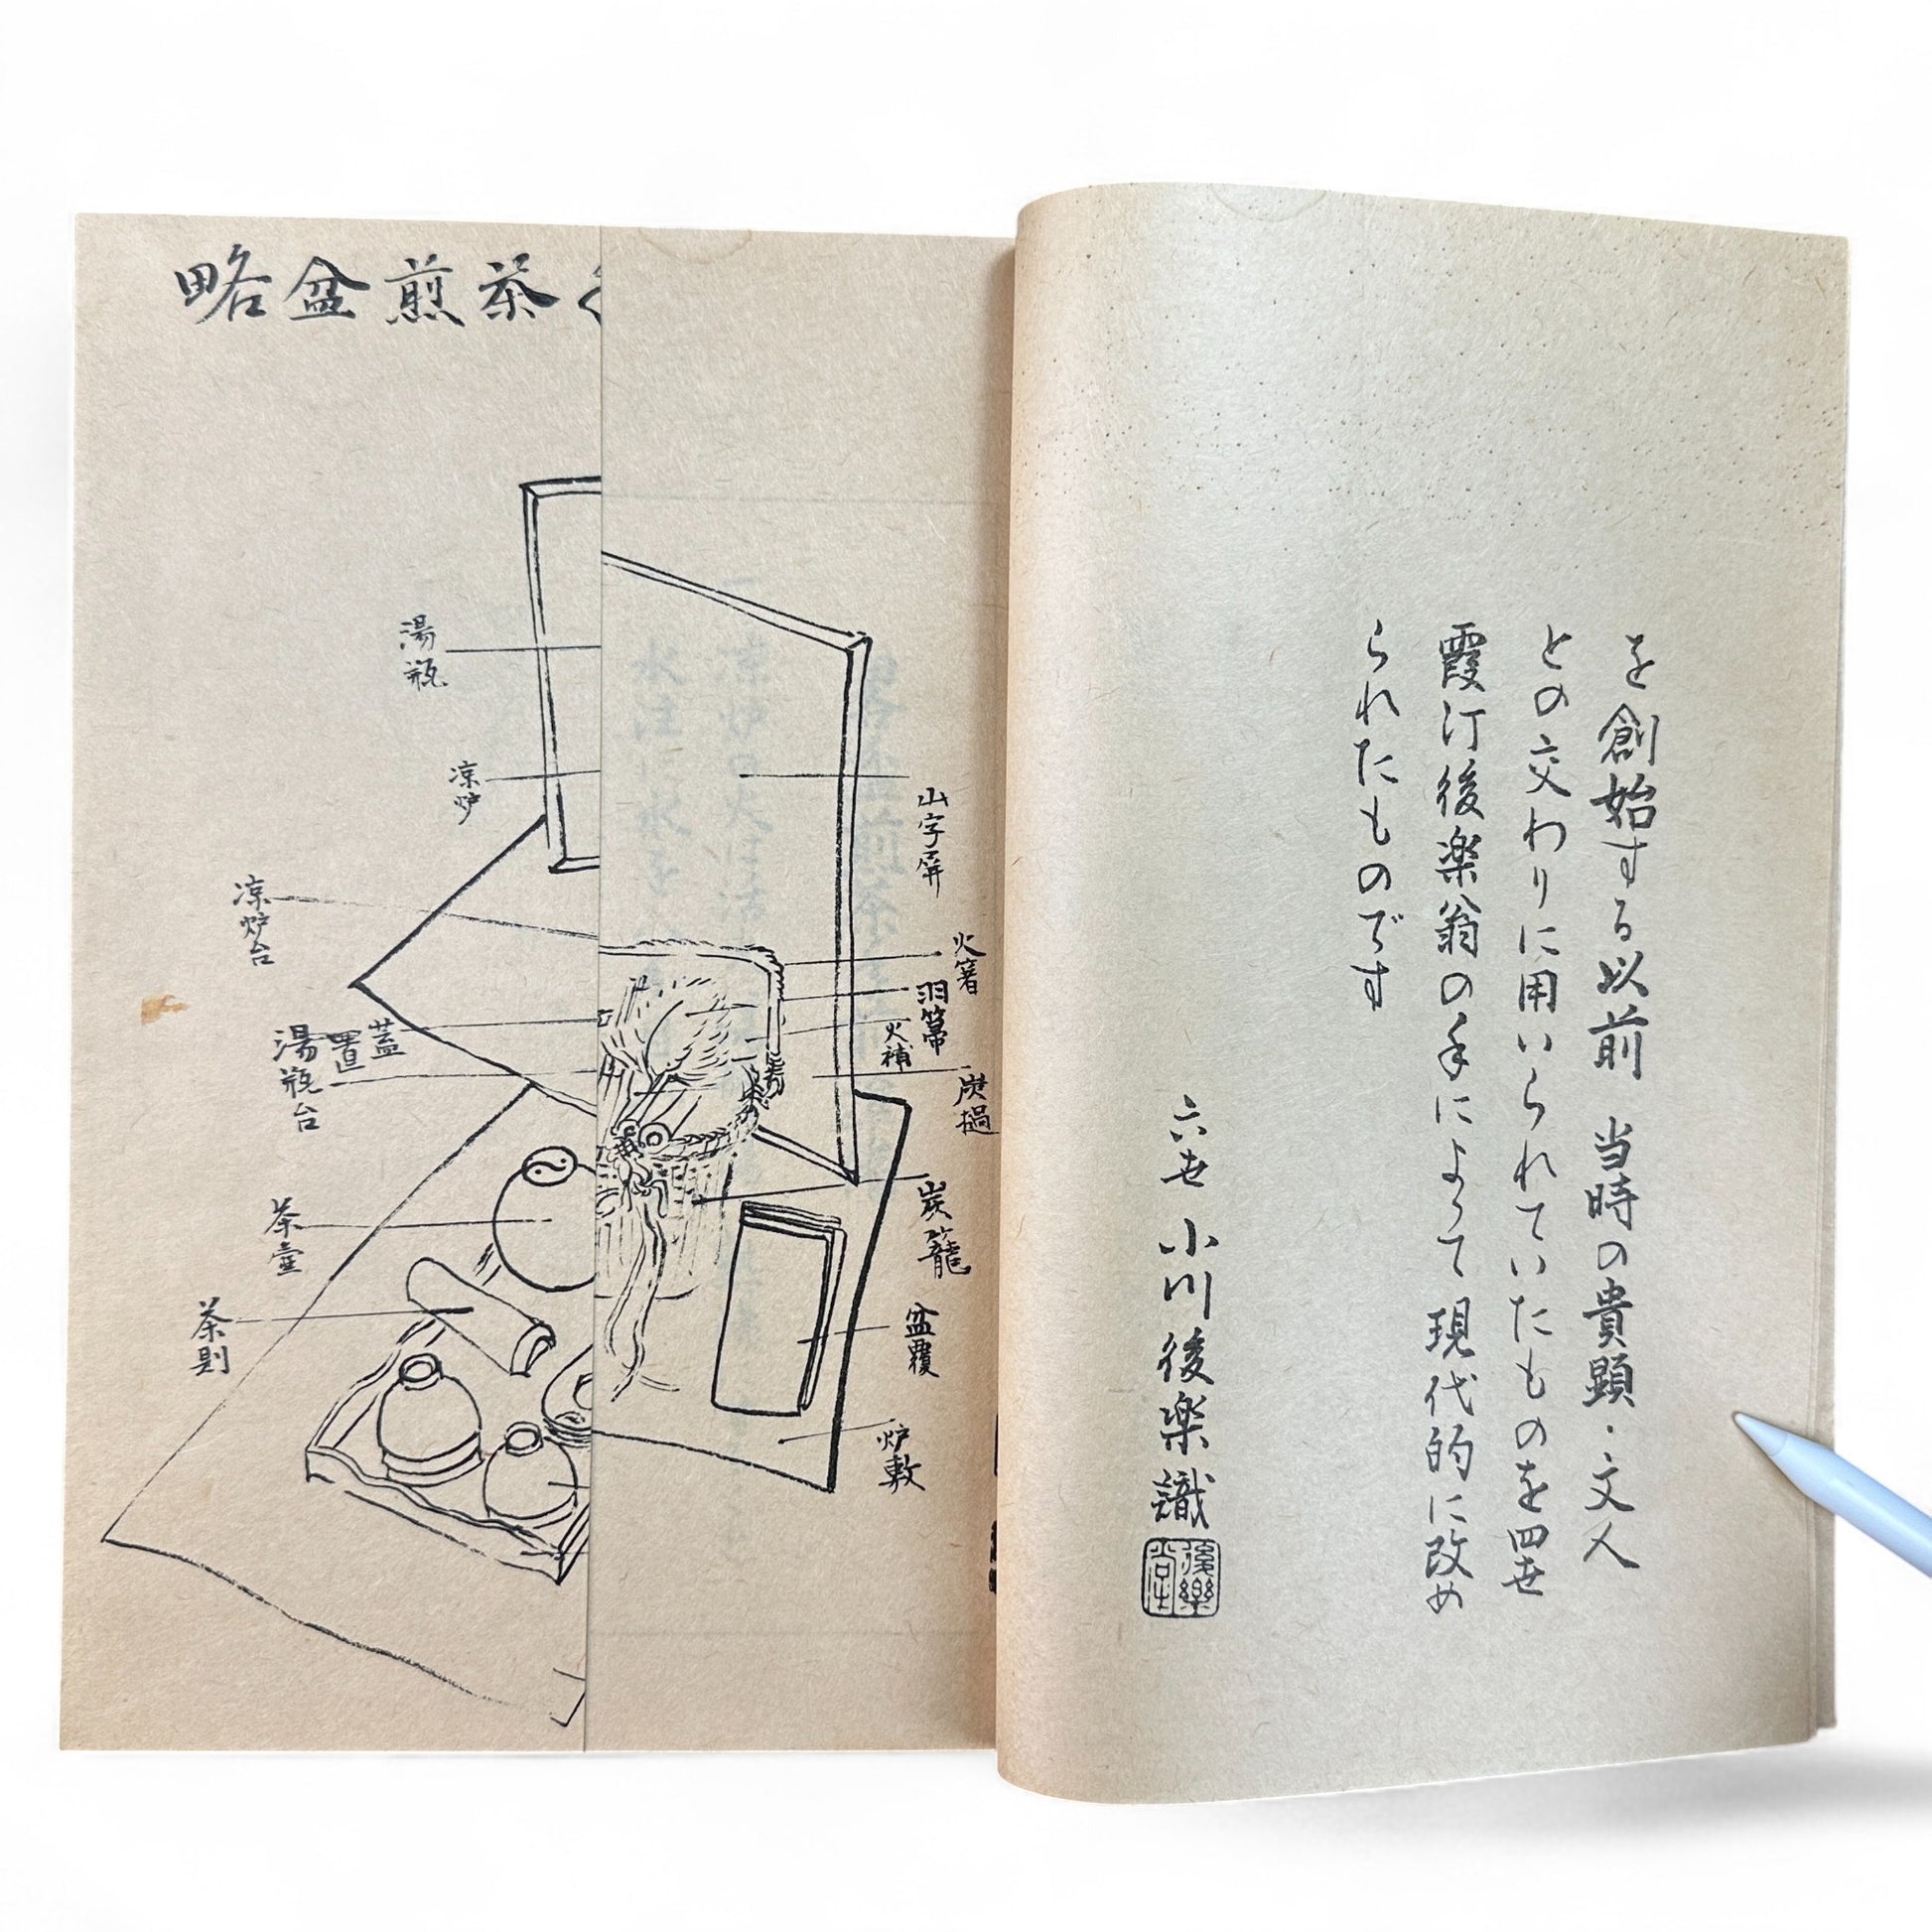 を創始する以前 当時の貴顕・文人
との交わりに用いられていたものを四世
霞汀後楽翁の手によって現代的に改め
られたものです
六世 小川後楽識
後樂堂
略盆煎茶
山字屏
火箸
羽箒
火補
炭撾
炭籠
盆覆
炉敷
湯瓶
凉炉
凉炉台
蓋置
湯瓶台
茶壷
茶則